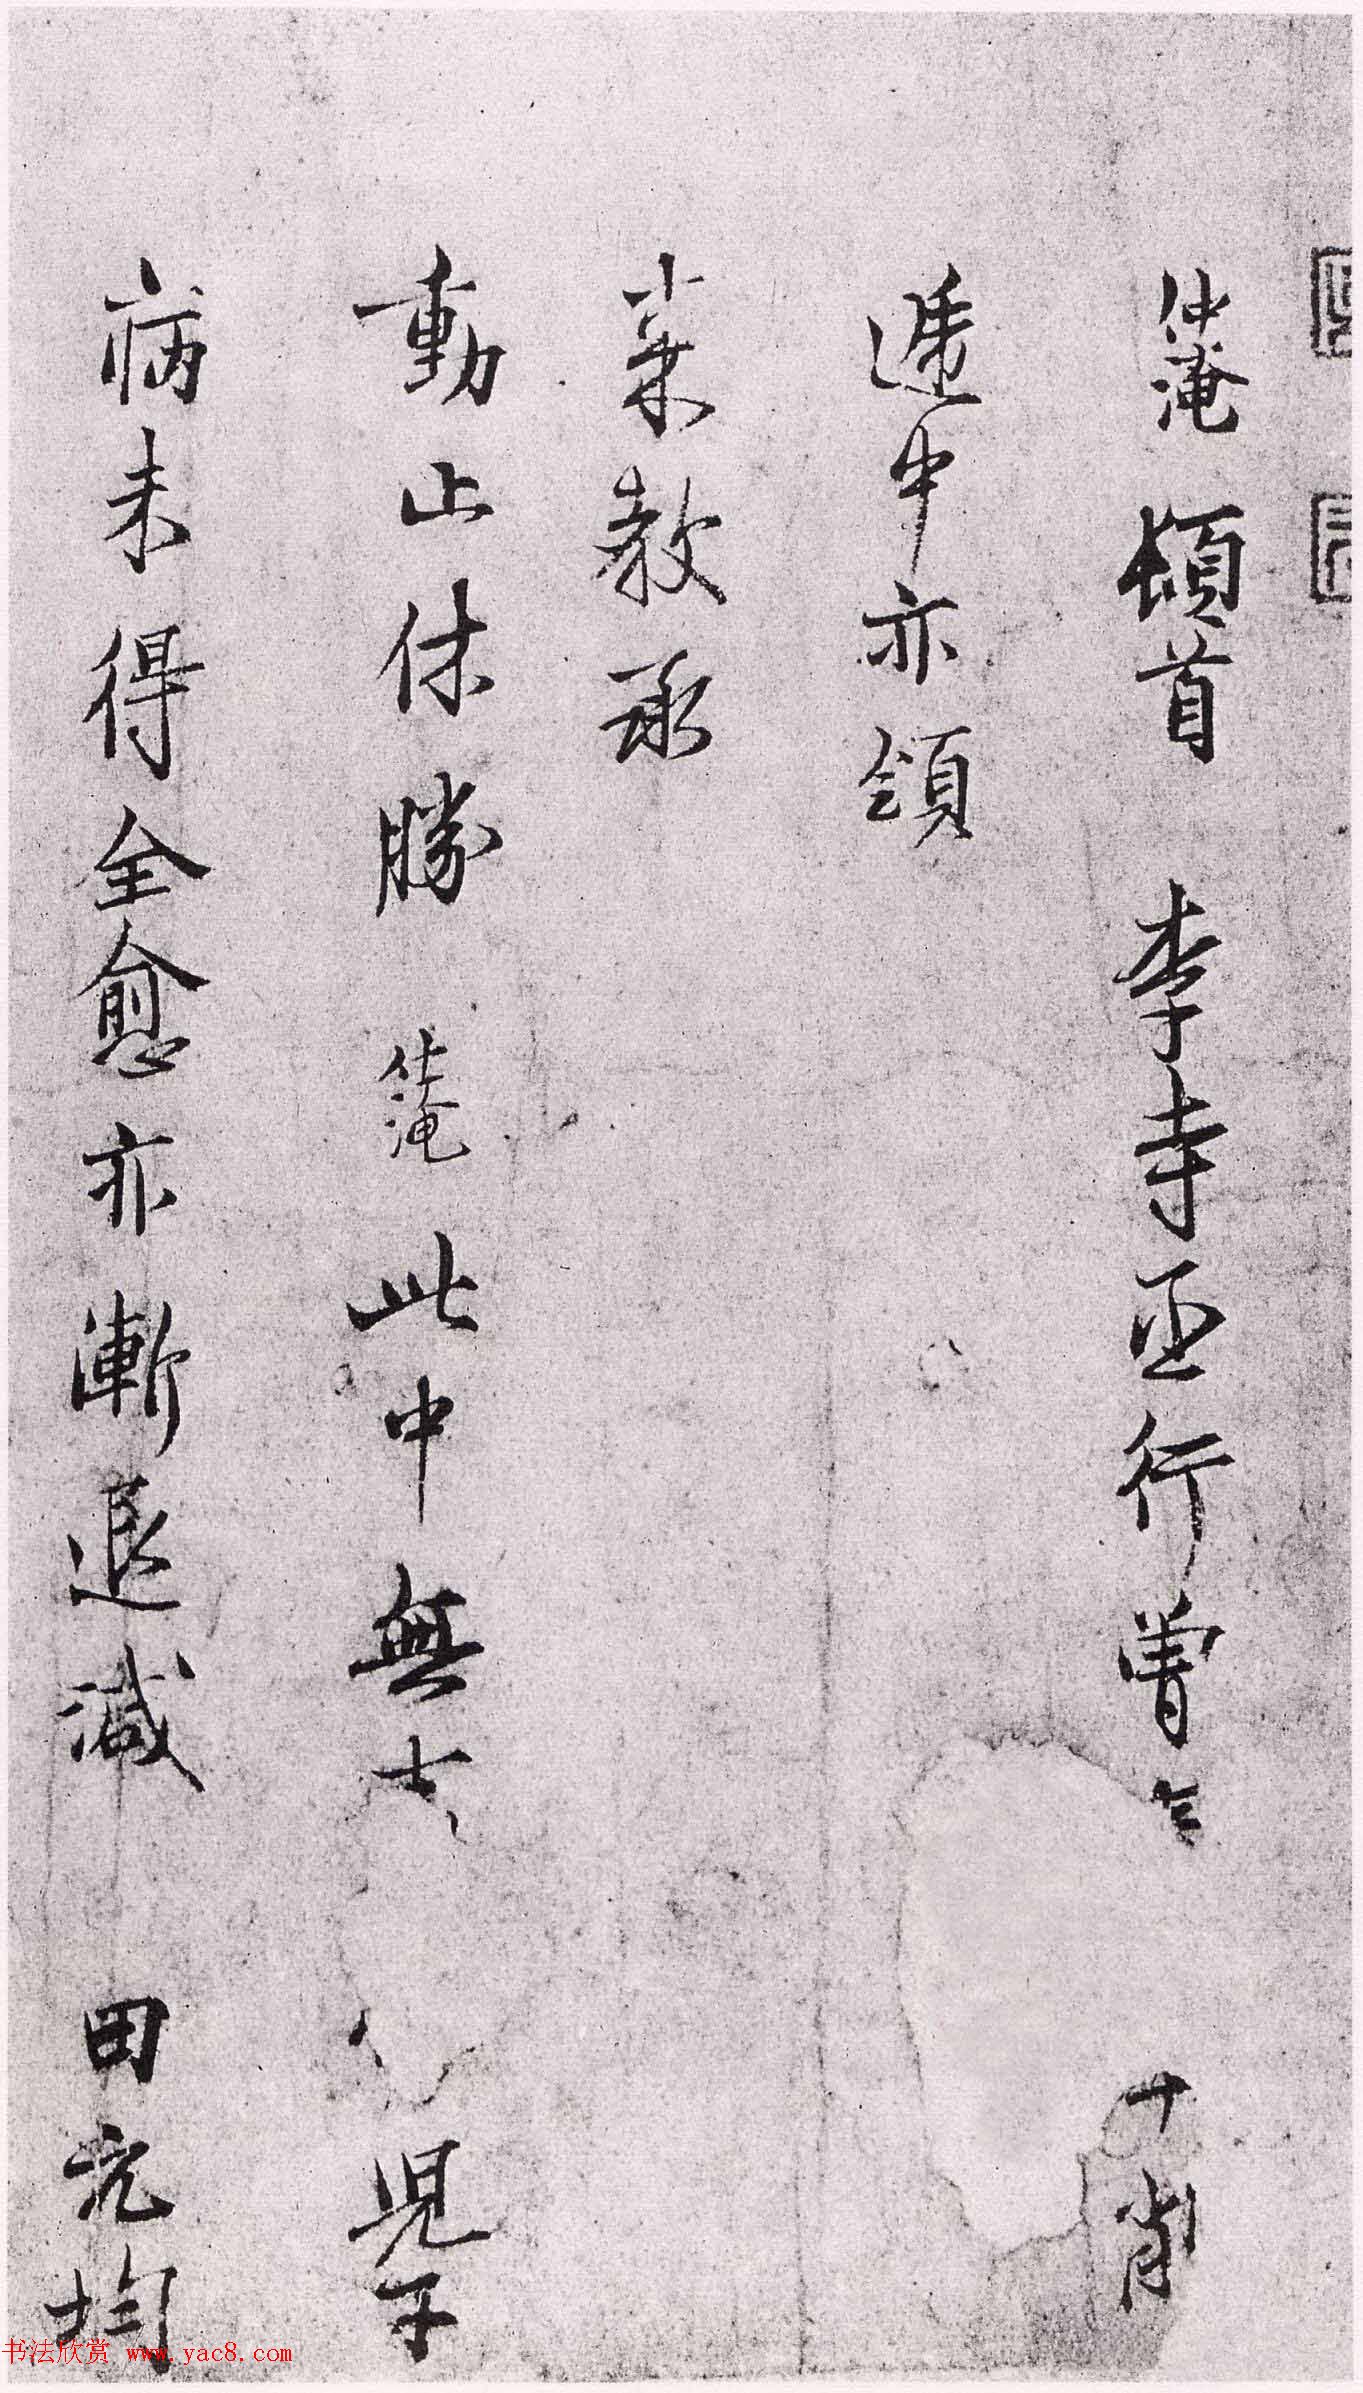 仲淹頓首李寺丞行曾
十削
遞中亦領
來教承
動止休勝仲淹此中無
兒子
病未得全愈亦漸退減田元均
书法欣赏 www.yac8.com